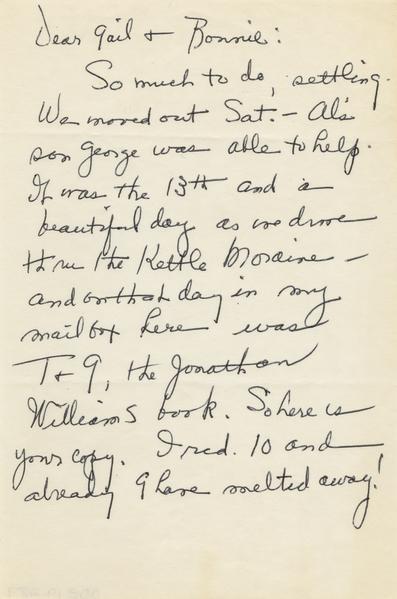 Dear Gail + Bonnie:
So much to do, settling.
We moved out Sat. – Al's
son George was able to help.
It was the 13th and a
beautiful day as we drove
thru the Kettle Moraine –
and on that day in my
mailbox here was
T + G, the Jonathan
Williams book. So here is
your copy. I recd. 10 and
already 9 have melted away!